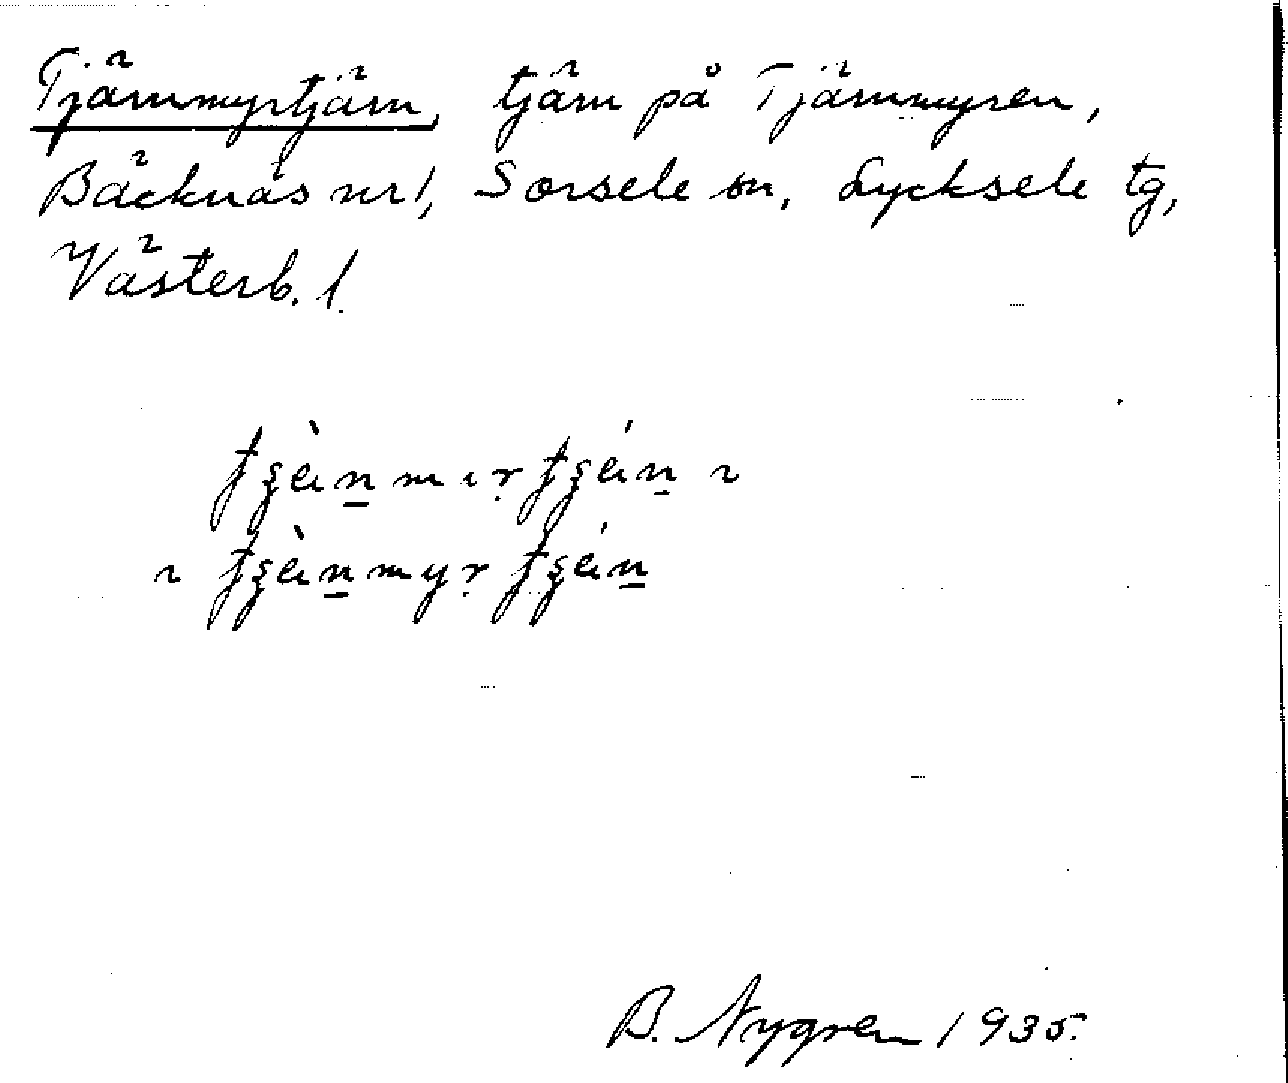 Tjärnmyrtjärn, tjärn på Tjärnmyren,
Bäcknäs nr 1, Sorsele sn, Lycksele tg,
Västerb. l.
B. Nygren 1935.